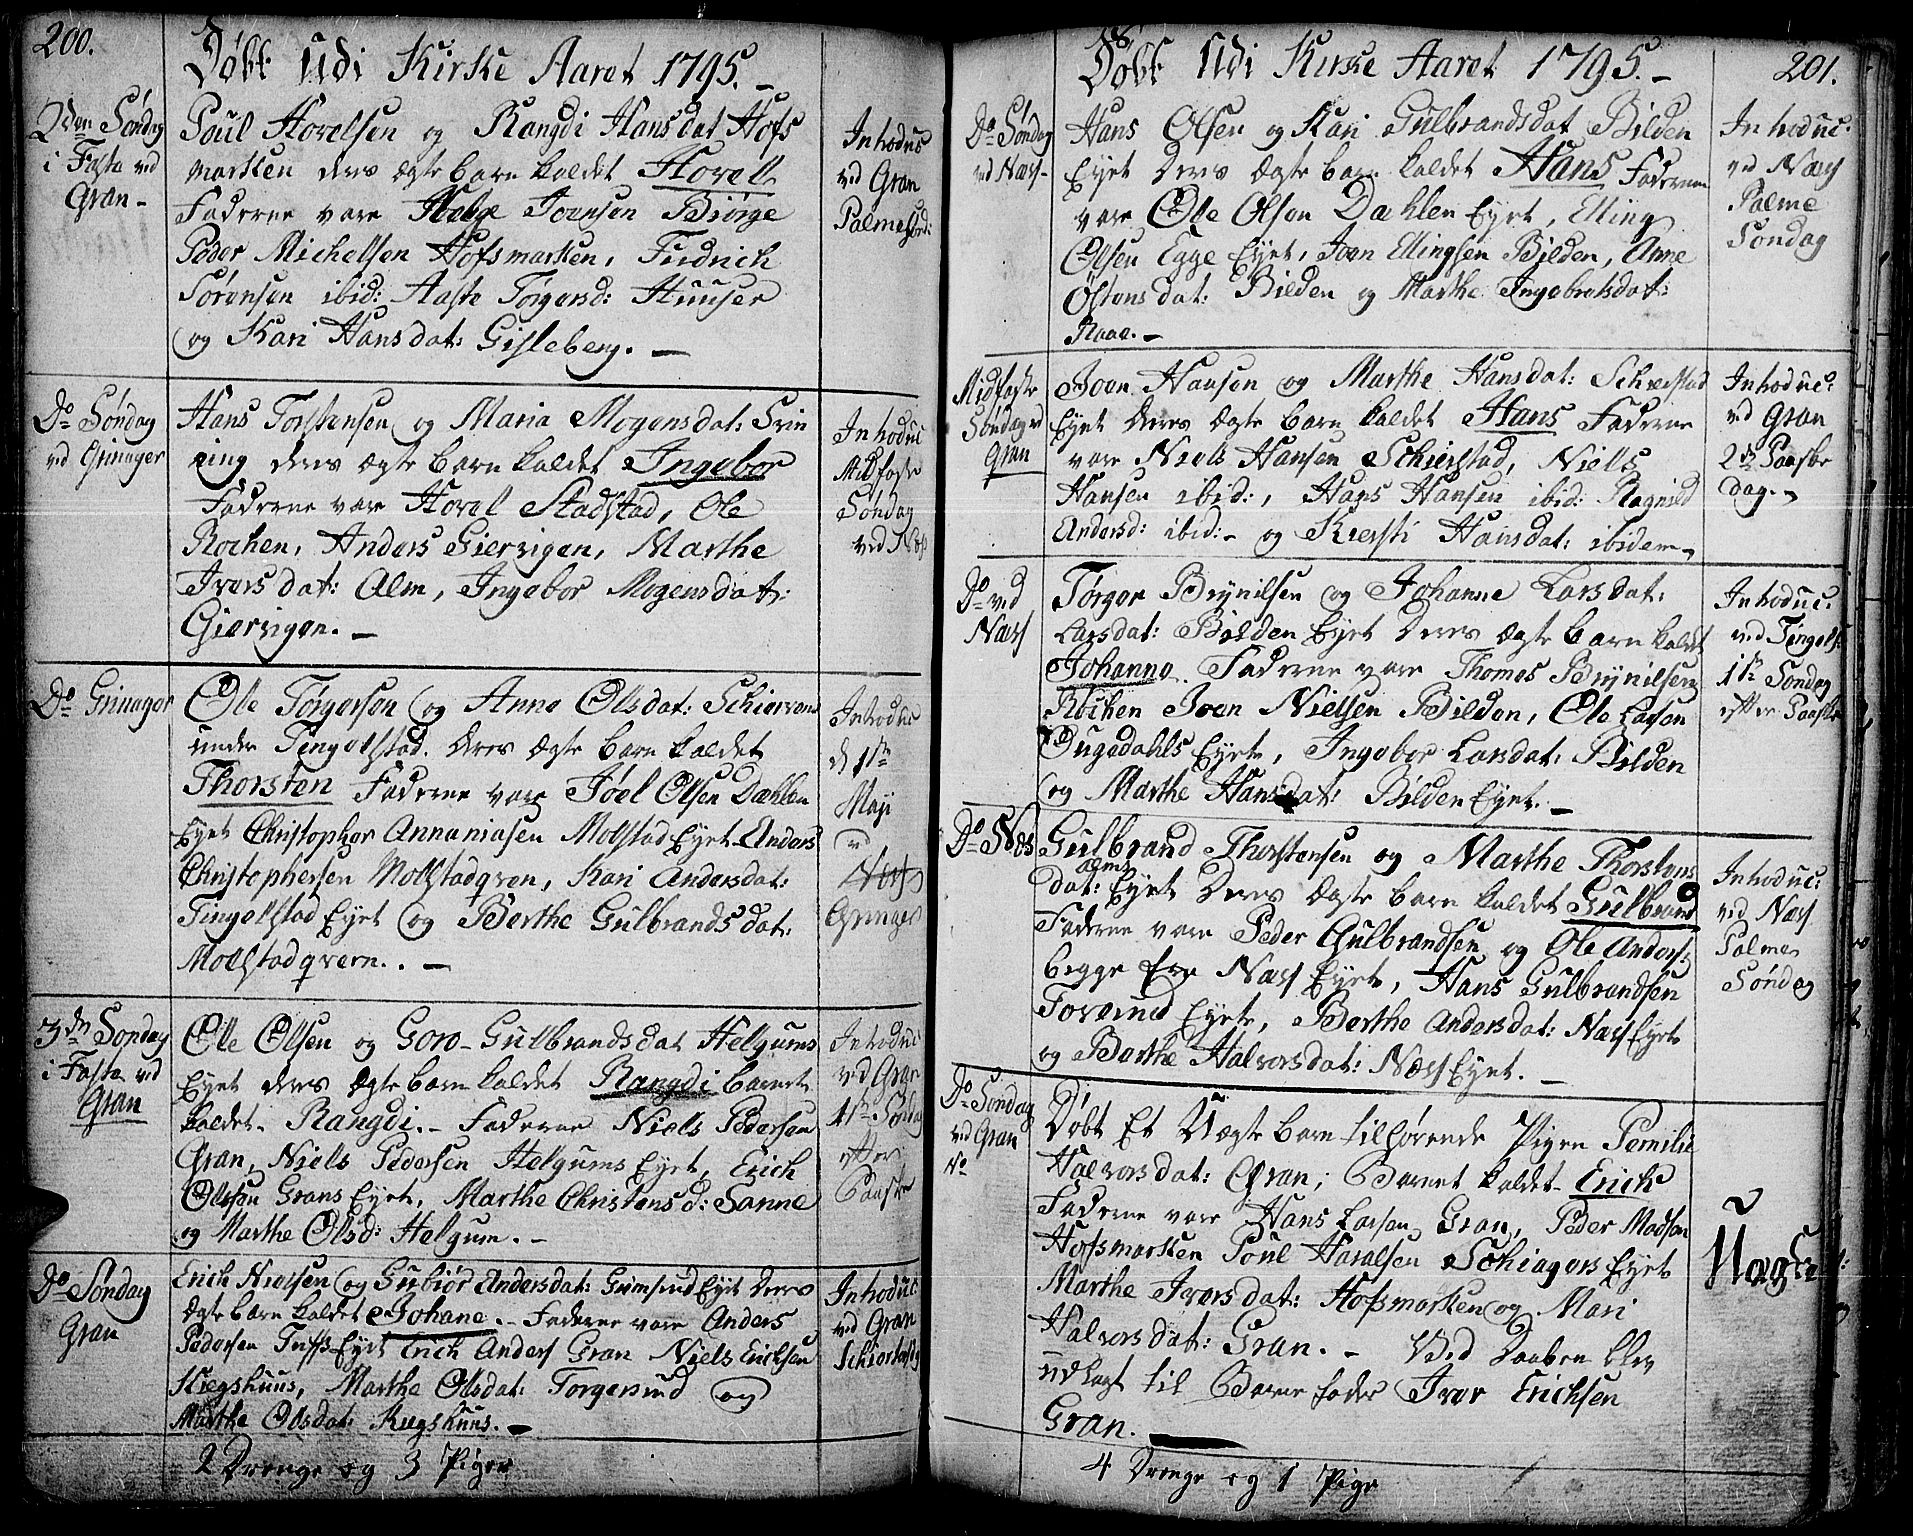 200.
Døbt Udi Kirke Aaret 1795. -
2den Søndag
i Faste ved
Gran -
Poul Hovelsen og Rangdi Hansdat Hofs
marken deres ægte barn kaldet Hovell
Faderne vare Helge Joensen Biørge
Peder Michelsen Hofsmarken, Fridrich
Sørensen ibid: Aaste Torgersd: Huuser
og Kari Hansdat: Gisleberg. -
Introduc
ved Gran
Palmesønd:
Do Søndag
ved Grinager
Hans Torstensen og Maria Mogensdat:
deres ægte barn kaldet Ingebor
Faderne vare Hovel Stadstad, Ole
Rochen, Anders Giervigen, Marthe
Iversdat: Alm, Ingebor Mogensdat:
Giervigen. -
Introduc
Midfaste
Søndag
ved Næs
Do Grinager
Ole Torgersen og Anne Olsdat:
under Tingelstad. deres ægte barn kaldet
Thorsten Faderne vare Joel Olsen Dæhlen
Eyet Christopher Annaniasen Molstad Eyet Anders
Christophersen Molstadqven, Kari Andersdat:
Tingelstad Eyet og Berthe Gulbrandsdat:
Molstadqvern. . -
Introduc
d 1te
Maji
ved
Næs
Grinager
3de Søndag
i Faste ved
Gran
Ole Olsen og Goro Gulbrandsdat Helgums
Eyet deres ægte barn kaldet Rangdi barnet
kaldet. Rangdi. - Faderne Niels Pedersen
Gran, Niels Pedersen Helgums Eyet, Erich
Olsen Grans Eyet, Marthe Christensd: Sanne
og Marthe Olsd: Helgum. -
Introduc
ved Gran
Søndag
efter
Paaske
Do Søndag
Gran
Erich Niersen og Gubiør Andersdat: Grimsrud Eyet deres
ægte barn kaldet Johane. - Faderne vare Anders
Pedersen Eyet Erich Anders Gran Niels Erichsen
Kiegshuus, Marthe Olsdat: Torgersrud og
Marthe Olsdat: Kiegshuus. -
Introduc:
ved Gran
Schiertorsd:
2 Drenge og 3 Piger
201.
Døbt Udi Kirke Aaret 1795. -
Do Søndag
ved Næs -
Hans Olsen og Kari Gulbrandsdat Bilden
Eyet deres ægte barn kaldet Hans Faderne
vare Ole Olsen Dæhlen Eyet, Elling
Olsen Egge Eyet, Joen Ellingsen Bilden, Anne
Østensdat: Bilden og Marthe Ingebretsdat:
Raae. -
Introduc:
ved Næs
Palme
Søndag
Midfaste
Søndag ved
Gran
Joen Hansen og Marthe Hansdat: Schierstad
Eyet deres ægte barn kaldet Hans Faderne
vare Niels Hansen Schierstad, Niels
Hansen ibid:, Hans Hansen ibid: Ragnild
Andersd: ibid: - og Kiersti Hansdat: ibidem -
Introduc:
ved Gran
2den Paaske
dag. -
Do ved
Næs
Torger Brynilsen og Johanne Larsdat:
Larsdat: Bilden Eyet Deres ægte barn kaldet
Johanne. Faderne vare Thomes Brynilsen
Rochen Joen Nielsen Bilden, Ole Larsen
Dugedahls Eyet, Ingebor Larsdat: Bilden
og Marthe Hansdat: Bilden Eyet. -
Introduc:
ved Tingels:
1te Søndag
efter Paaske
Do Næs
Gulbrand Thorstensen og Marthe Thorstens
alms
dat: Eyet Deres ægte barn kaldet Gulbrand
Faderne vare Peder Gulbrandsen og Ole Anders:
begge Ere Næss Eyet, Hans Gulbrandsen
Eyet, Berthe Andersdat: Næss Eyet
og Berthe Halvorsdat: Næss Eyet. -
Introduc:
ved Næss
Palme
Søndag
Do Søndag
ved Gran
No
Døbt Et Uægte barn tilhørende Pigen Pernilie
Halvorsdat: Gran; Barnet kaldet Erich
Faderne vare Hans Larsen Gran, Peder Madsen
Hofsmarken Poul Haralsen Schiagers Eyet
Marthe Iversdat: Hofsmarken og Mari
Halvorsdat: Gran. - Ved Daaben blev
udlagt til Barne fader Iver Erichsen
Gran.
Uægte
4 Drenge og 1 Pige